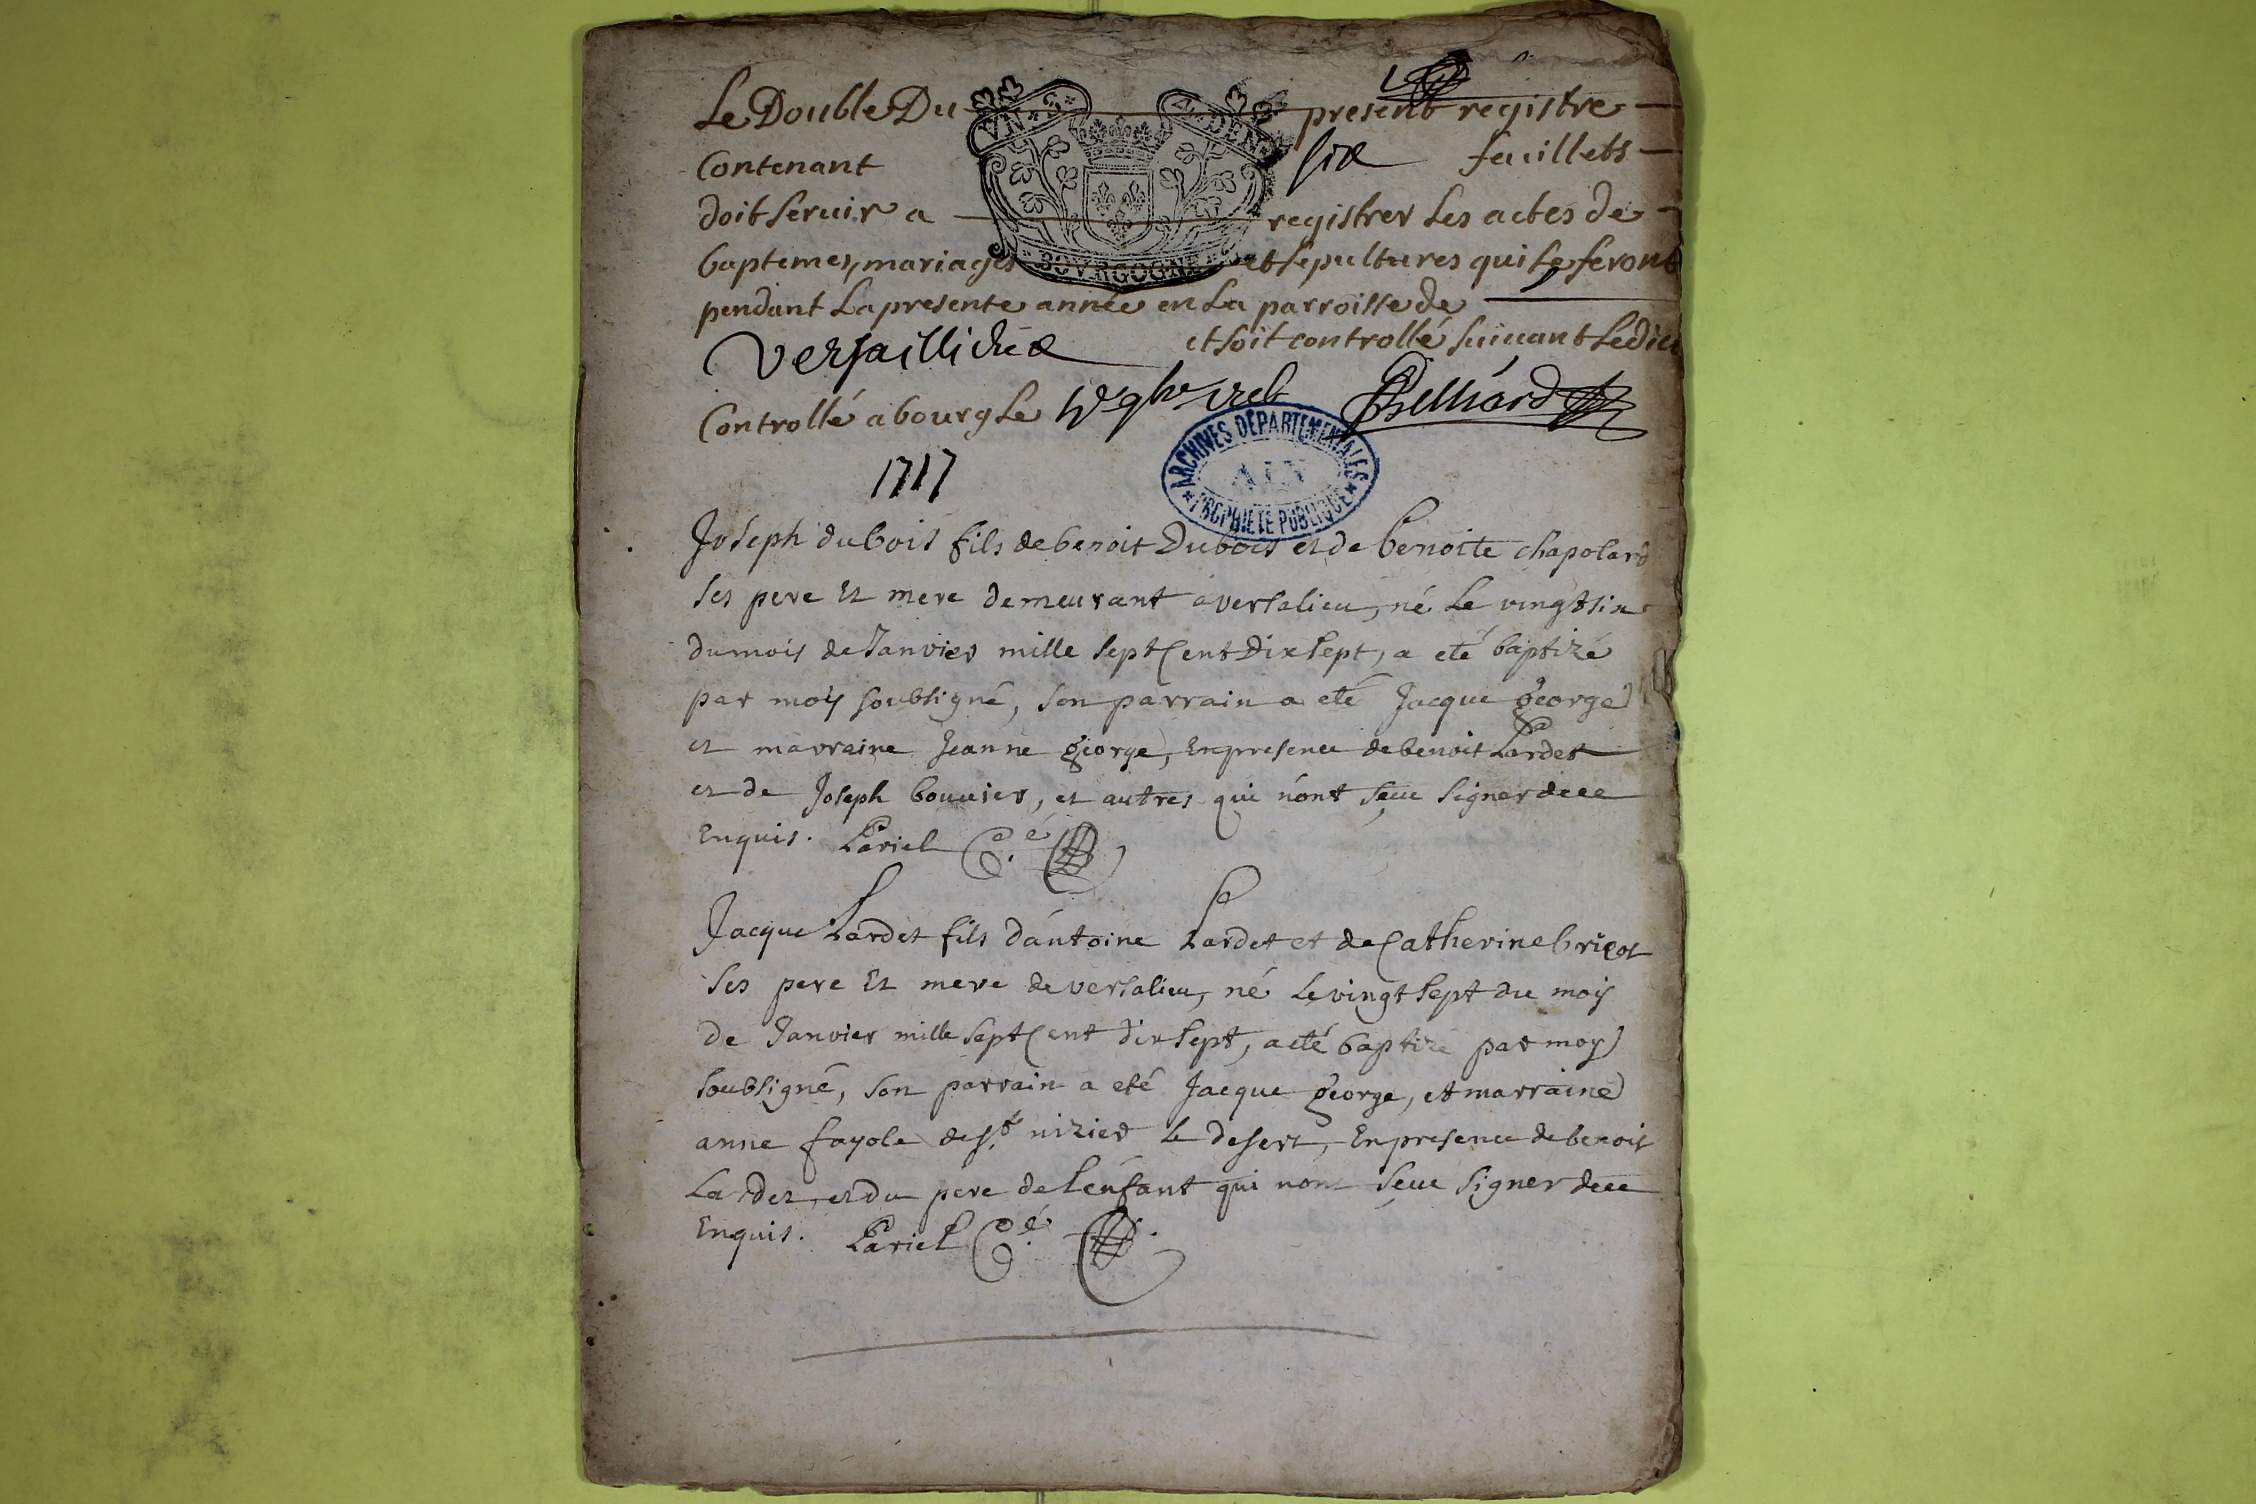 Le Double Du present registre
VN S. A. DEN
Contenant six feuillets
doit servir a registrer Les actes de
baptemes, mariages et sepultures qui se feront
BOVRGOGNE
pendant La presente année en La parroisse de
et soit controllé suivant Ledit
Controllé a bourg Le
ARCHIVES DEPARTEMENTALES
AIN
PROPRIETE PUBLIQUE
1717
Joseph dubois fils de benoit Dubois et de benoite chapolard
ses pere Et mere demeurant a versalieu, né Le vingt six
du mois de Janvier mille sept Cent Dix sept, a eté baptizé
par moy soubsigné, son parrain a eté Jacque george
et marraine Jeanne george, En presence de benoit Lardet
et de Joseph bouvier, et autres qui n'ont sceu signer dece
Enquis. Lariel
Jacque Lardet fils d'antoine Lardet et de Catherine brigot
ses pere Et mere de versalieu, né Le vingt sept du moy
de Janvier mille sept Cent dix sept, a eté baptizé par moy
soubsigné, son parrain a eté Jacque george, et marraine
anne fayole de st. nizier Le desert, En presence de benoit
Lardet, et du pere de L'enfant qui n'ont sceu signer dece
Enquis. Lariel